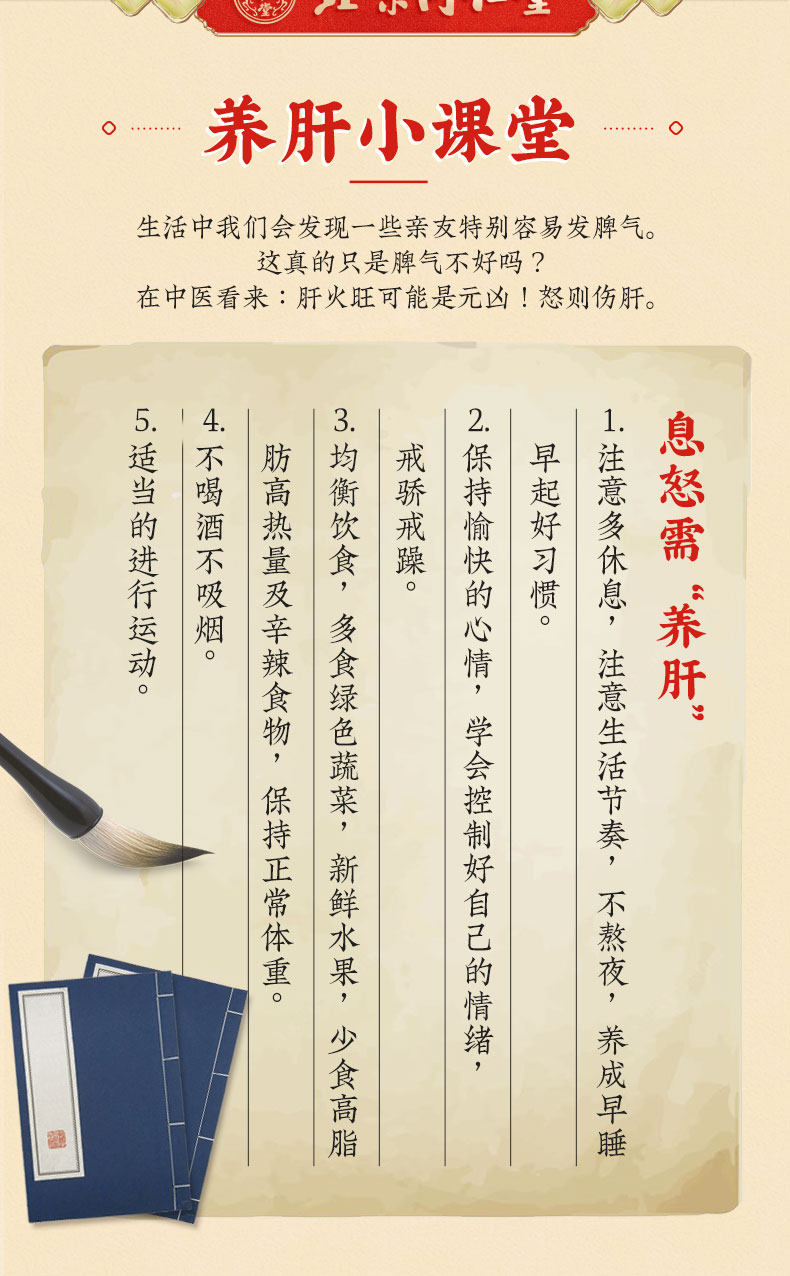 养肝小课堂
生活中我们会发现一些亲友特别容易发脾气。
这真的只是脾气不好吗？
在中医看来：肝火旺可能是元凶！怒则伤肝。
息怒需“养肝”
1. 注意多休息，注意生活节奏，不熬夜，养成早睡
早起好习惯。
2. 保持愉快的心情，学会控制好自己的情绪，
戒骄戒躁。
3. 均衡饮食，多食绿色蔬菜，新鲜水果，少食高脂
肪高热量及辛辣食物，保持正常体重。
4. 不喝酒不吸烟。
5. 适当的进行运动。